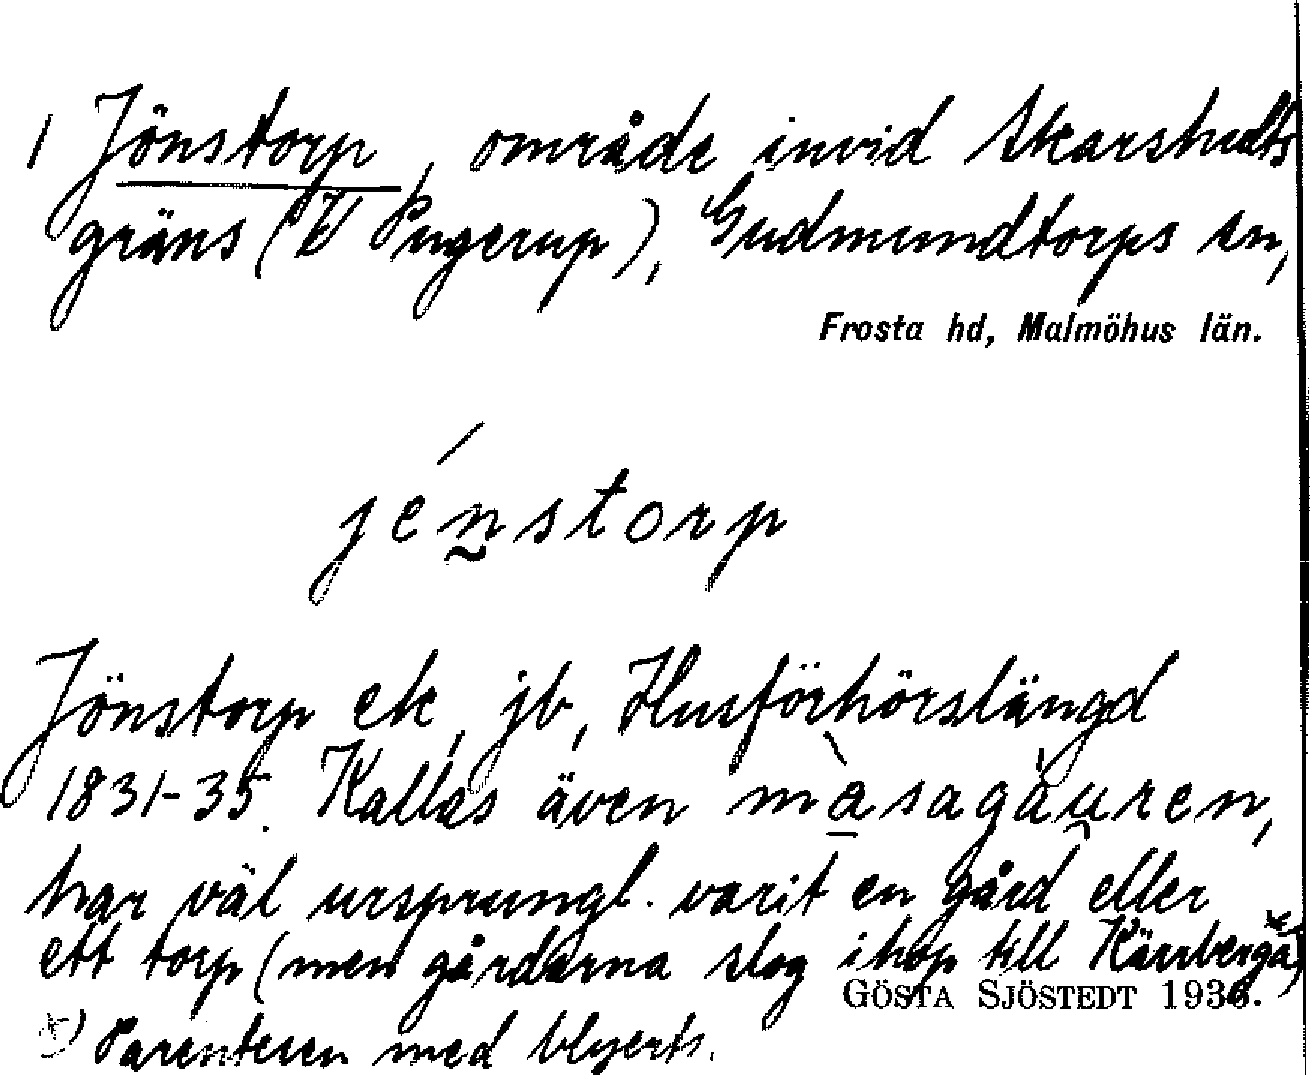 1 Jönstorp, område invid Skarshults
gräns (V Pugerup), Gudmundtorps sn,
Frosta hd, Malmöhus län.
jénstorp
Jönstorp ek, jb, Husförhörslängd
1831-35. Kallas även màsagàu̯ren,
har väl ursprungl. varit en gård eller
ett torp (men gårdarna slog ihop till Kärrberga) x)
GÖSTA SJÖSTEDT 1936.
x) Parentesen med blyerts.